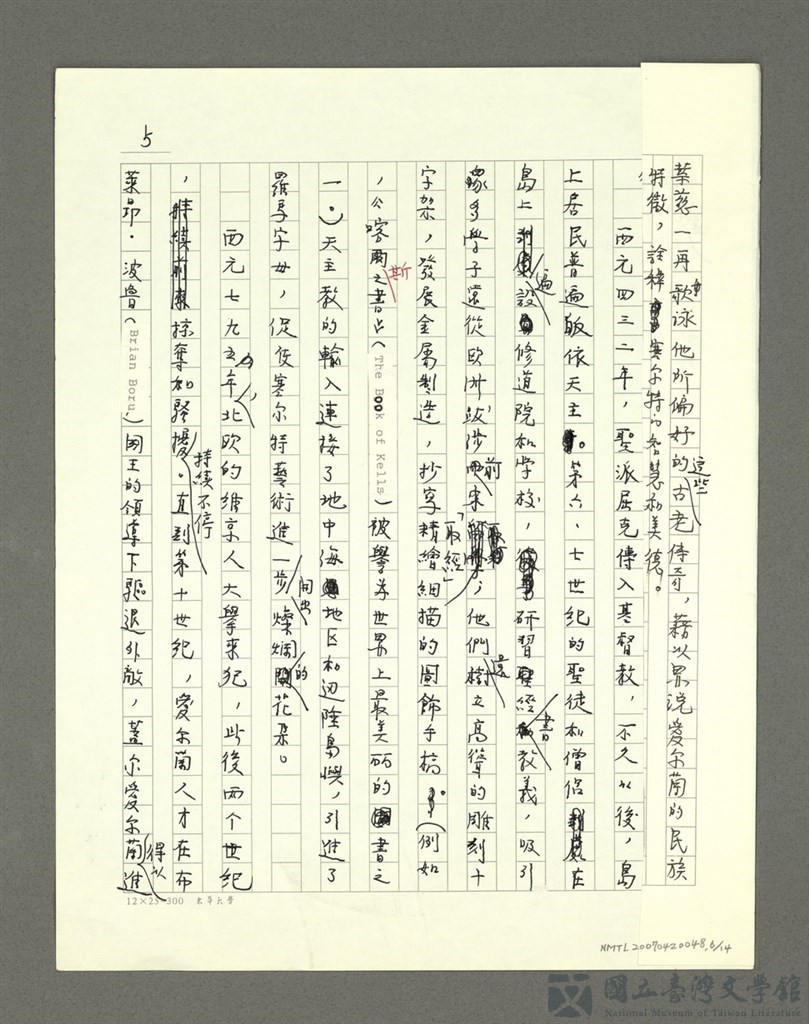 葉慈一再歌咏他所偏好的這些古老傳奇，藉以界說愛尔蘭的民族
特徵，詮釋塞尔特的智慧和美德。
西元四三二年，聖派屈克傳入基督教，不久以後，島
上居民普遍皈依天主。第六、七世紀的聖徒和僧侶在
島上遍設修道院和学校，研習經書教義，吸引
眾多學子還從欧洲跋涉前來「取經」；他們樹立高聳的雕刻十
字架，發展金屬製造，抄寫精繪細描的圖飾手稿。（例如
，《喀爾斯之書》（The Book of Kells）被譽為世界上最美丽的書之
一。）天主教的輸入連接了地中海地区和边陲島嶼，引進了
羅馬字母，促使塞尔特藝術進一步開出燦爛的花朵。
西元七九五年，北欧的維京人大舉來犯，此後两个世紀
，掠奪和騷擾持续不停。直到第十世紀，愛尔蘭人才在布
萊昂．波魯（Brian Boru）国王的領導下驅退外敵，蓋尔愛尔蘭得以進
5
12×25=300 東華大學
NMTL20070420048,6/14
國立臺灣文學館
National Museum of Taiwan Literature